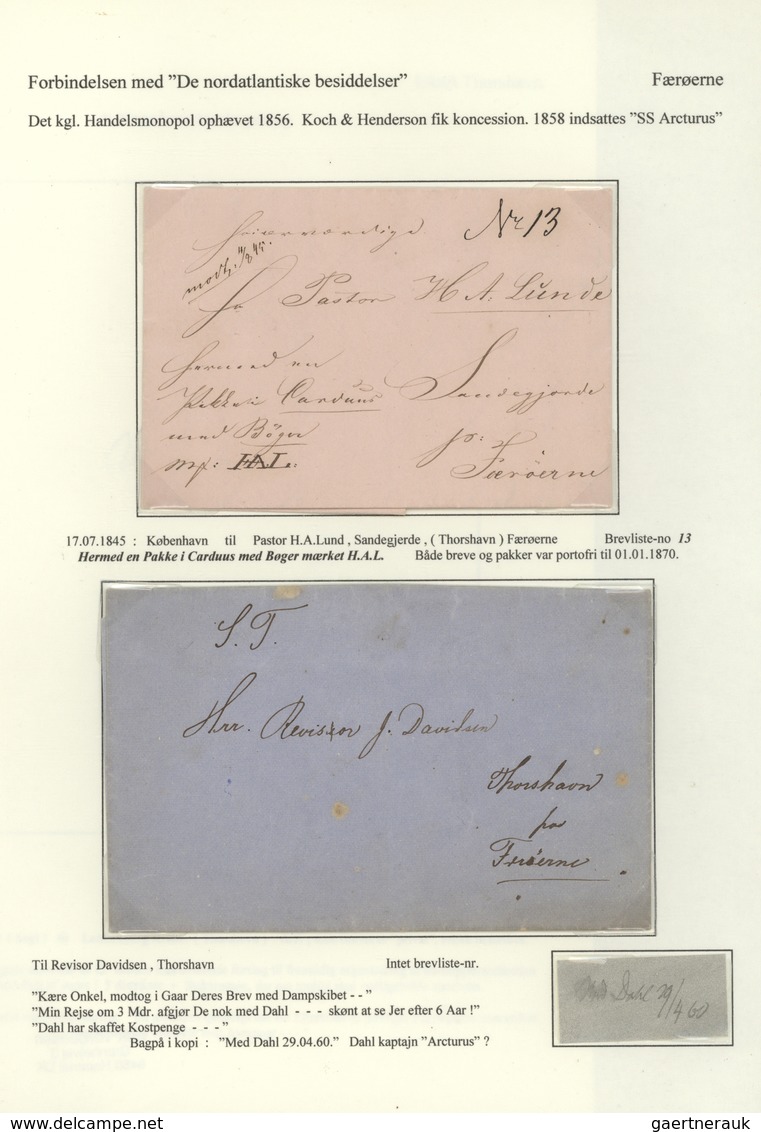 Forbindelsen med "De nordatlantiske besiddelser" Færøerne
Det kgl. Handelsmonopol ophævet 1856. Koch & Henderson fik koncession. 1858 indsattes "SS Arcturus"
Nr 13
modt. 14/8 45.
Hr Pastor H A. Lunde
hermed en Sandegjerde
Pakke i Carduus
med Bøger p:
mrk: HAL Færöerne
17.07.1845 : København til Pastor H.A.Lund , Sandegjerde , ( Thorshavn ) Færøerne Brevliste-no 13
Hermed en Pakke i Carduus med Bøger mærket H.A.L. Både breve og pakker var portofri til 01.01.1870.
S. T.
Hrr. Revisor J. Davidsen
Thorshavn
paa
Færöerne
Til Revisor Davidsen , Thorshavn Intet brevliste-nr.
"Kære Onkel, modtog i Gaar Deres Brev med Dampskibet - - "
"Min Rejse om 3 Mdr. afgjør De nok med Dahl - - - skønt at se Jer efter 6 Aar !"
"Dahl har skaffet Kostpenge - - - "
Bagpå i kopi : "Med Dahl 29.04.60." Dahl kaptajn "Arcturus" ?
Med Dahl 29/4 60
www.delcampe.net gaertnerauk